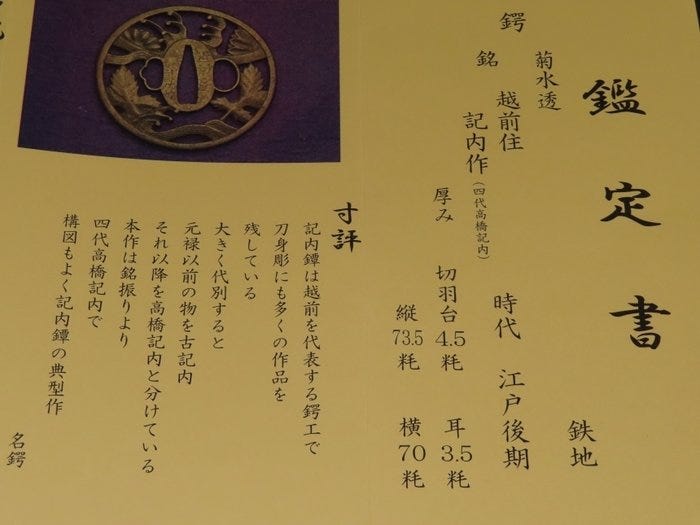 鑑定書
鉄地
菊水透
鍔
銘 越前住
記内作(四代高橋記内)
時代 江戸後期
厚み 切羽台4.5粍 耳3.5粍
縦73.5粍 横70粍
寸評
記内鐔は越前を代表する鍔工で
刀身彫にも多くの作品を
残している
大きく代別すると
元禄以前の物を古記内
それ以降を高橋記内と分けている
本作は銘振りより
四代高橋記内で
構図もよく記内鐔の典型作
名鍔